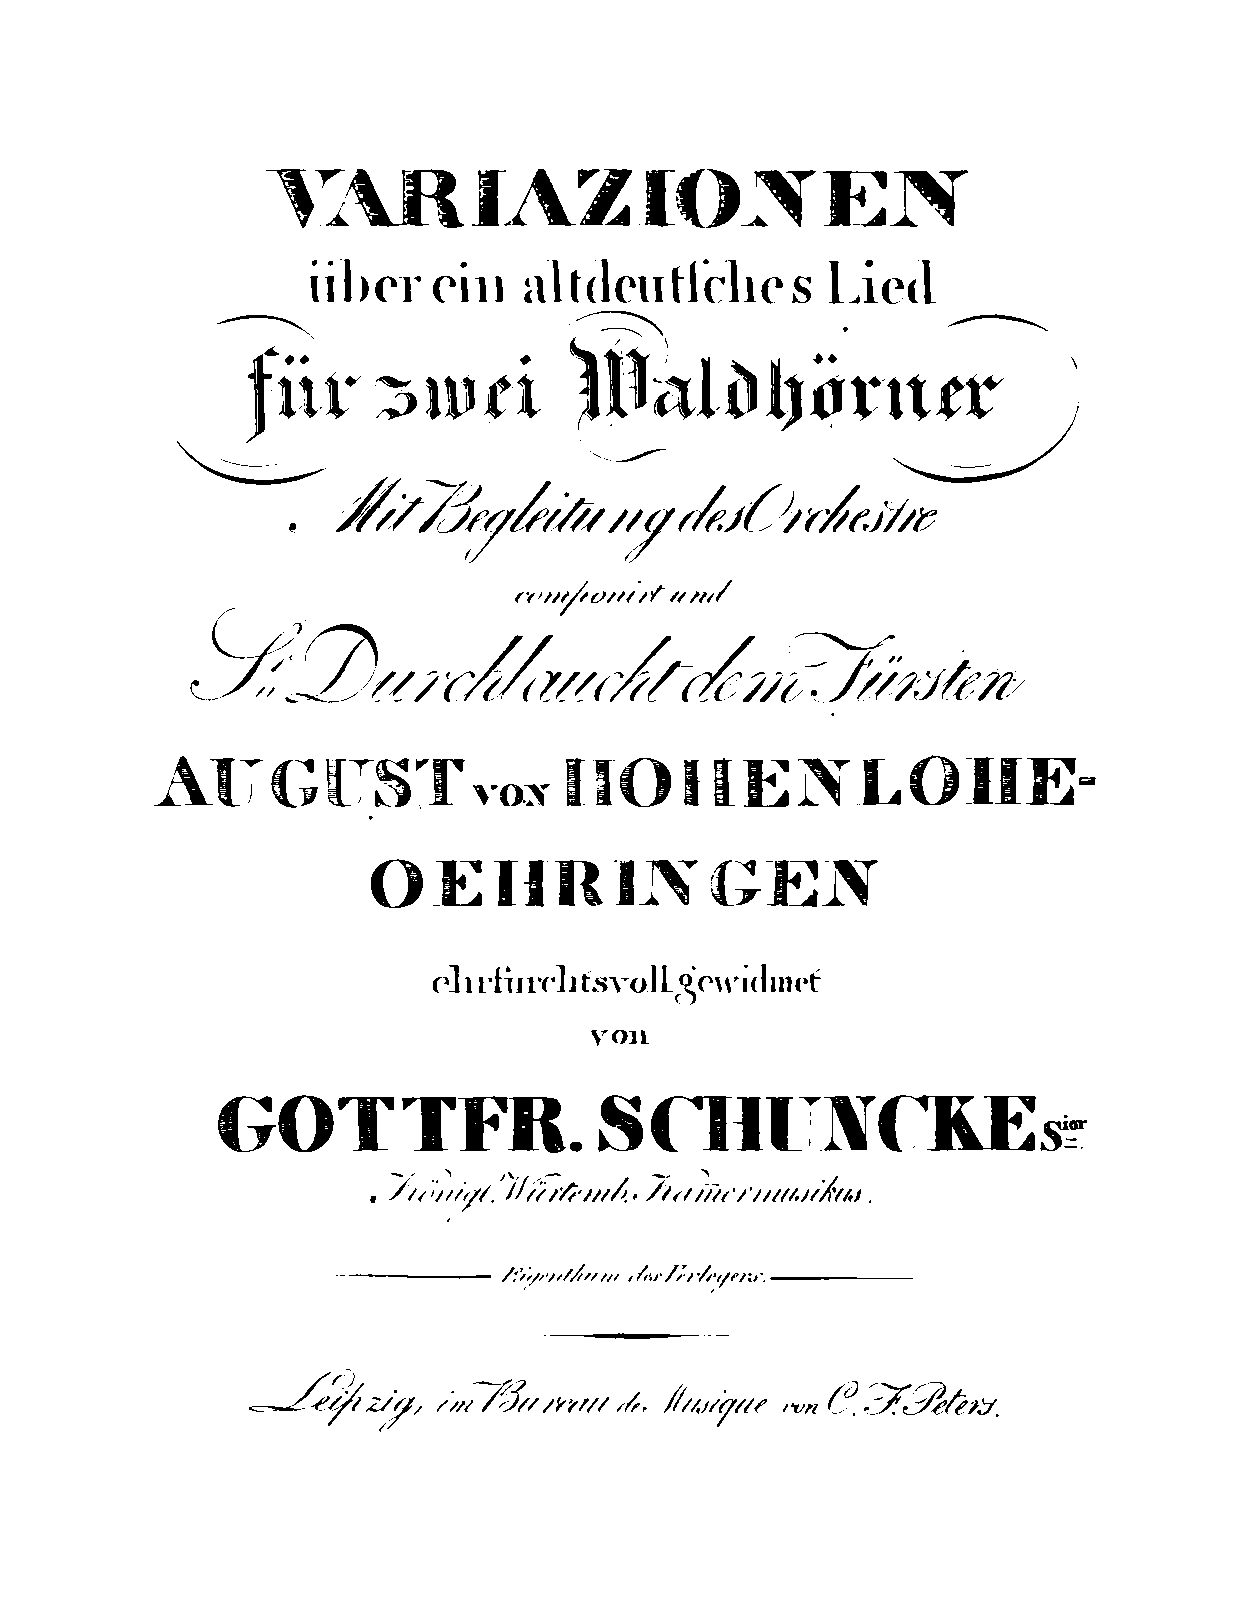 VARIAZIONEN
über ein altdeutſches Lied
für zwei Waldhörner
Mit Begleitung des Orchestre
componirt und
Sr. Durchlaucht dem Fürsten
AUGUST von HOHENLOHE-
OEHRINGEN
ehrfurchtsvoll gewidmet
von
GOTTFR. SCHUNCKE Sior
Königl. Würtemb. Kam̅ermusikus.
Eigenthum des Verlegers.
Leipzig, im Bureau de Musique von C. F. Peters.